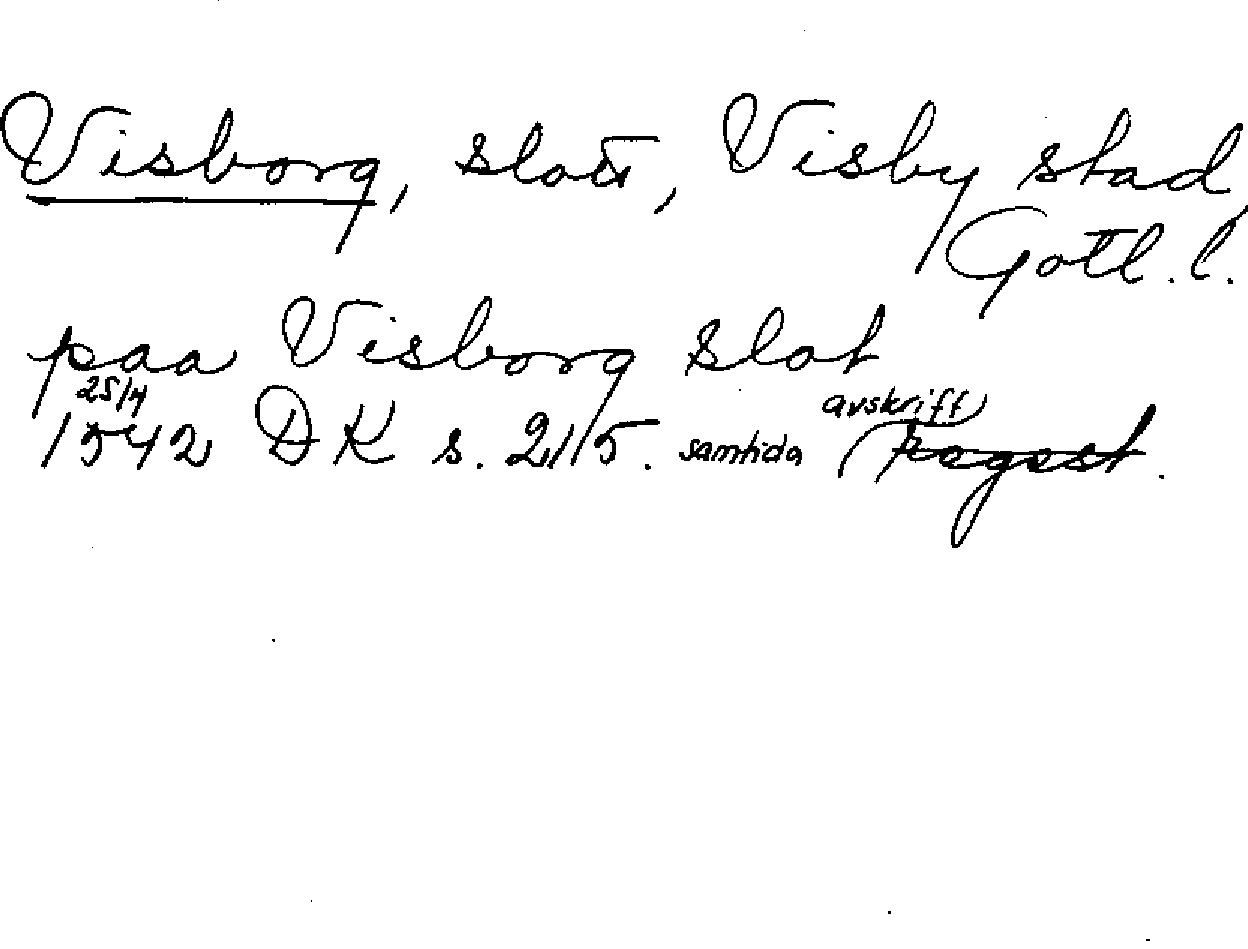 Visborg, slott, Visby stad,
Gotl. l.
paa Visborg slot
25/4
avskrift
1542 DK s. 215. samtida Regest.